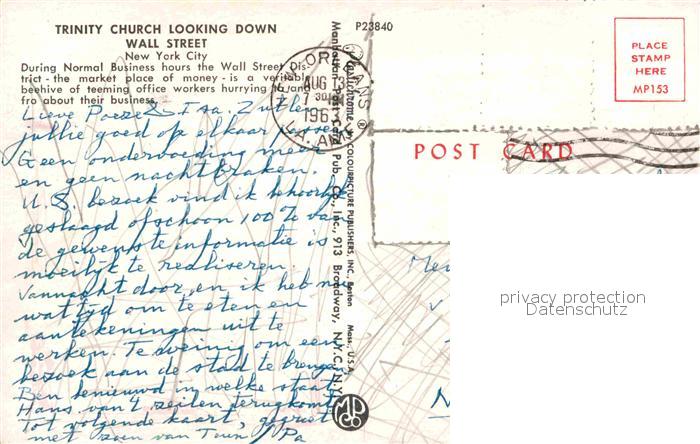 TRINITY CHURCH LOOKING DOWN
WALL STREET
New York City
During Normal Business hours the Wall Street Dis-
trict - the market place of money - is a veritable
beehive of teeming office workers hurrying to and
fro about their business.
Lieve Poeze & Isa. Zullen
jullie goed op elkaar passen
Geen ondervoeding meer
en geen nachtbraken.
U.S. bezoek vind ik behoorlijk
geslaagd ofschoon 100% van
de gewenste informatie is
moeilijk te realiseren.
Vannacht door, en ik heb nu
wat tijd om te eten en
aantekeningen uit te
werken. Te weinig om een
bezoek aan de stad te brengen
Ben benieuwd in welke staat
Hans van 't zeilen terugkomt
Tot volgende kaart, gegroet
met zoen van Pa
P23840
Manhattan Post Card Pub. Co., Inc., 913 Broadway, N.Y.C., N.Y.
COLOURPICTURE PUBLISHERS, INC. Boston Mass., U.S.A.
ORLEANS
AUG 13
7 30
1963
LA.
MPCo
PLACE
STAMP
HERE
MP153
POST CARD
privacy protection
Datenschutz